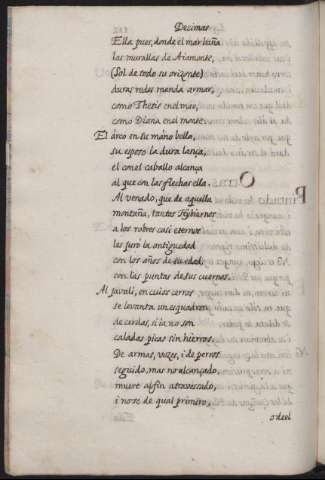 Decimas
Ella pues, donde el mar baña
las murallas de Aiamonte,
(Sol de todo su orizonte)
duras redes manda armar,
como Thetis en el mar,
como Diana en el monte.
El arco en su mano bella,
su esposo la dura lança,
el con el caballo alcança
al que con las flechas ella.
Al venado, que de aquella
montaña, tantos Hybiernos
a los robres casi eternos
les juró la antiguedad
con los años de su edad,
con las puntas de sus cuernos.
Al javali, en cuios cerros
se levanta un esquadron
de cerdas, si ia no son
caladas picas sin hierros.
De armas, vozes, i de perros
seguido, mas no alcançado,
muere al fin atravessado,
i no se de qual primero,
o de el